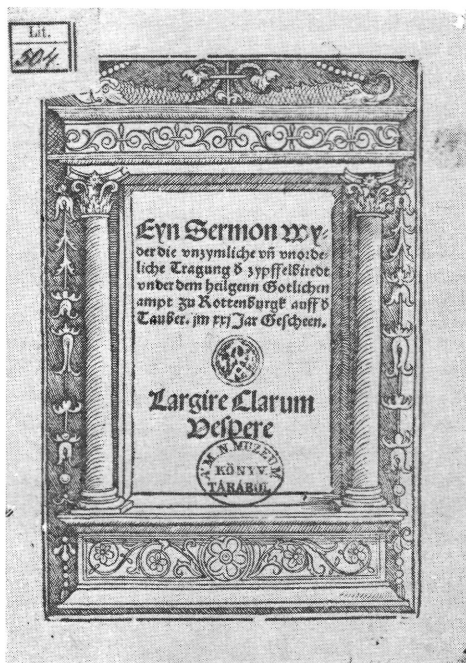 Lit.
504.
Eyn Sermon wy-
der die vnzymliche vñ vnorde-
liche Tragung d zypffelbiredt
vnder dem heilgenn Gotlichen
ampt zu Rottenburgk auff d
Tauber. jm xxj Jar Gescheen.
Largire Clarum
Vespere
A' M. N. MUZEUM
KÖNYV-
TÁRÁBÓL